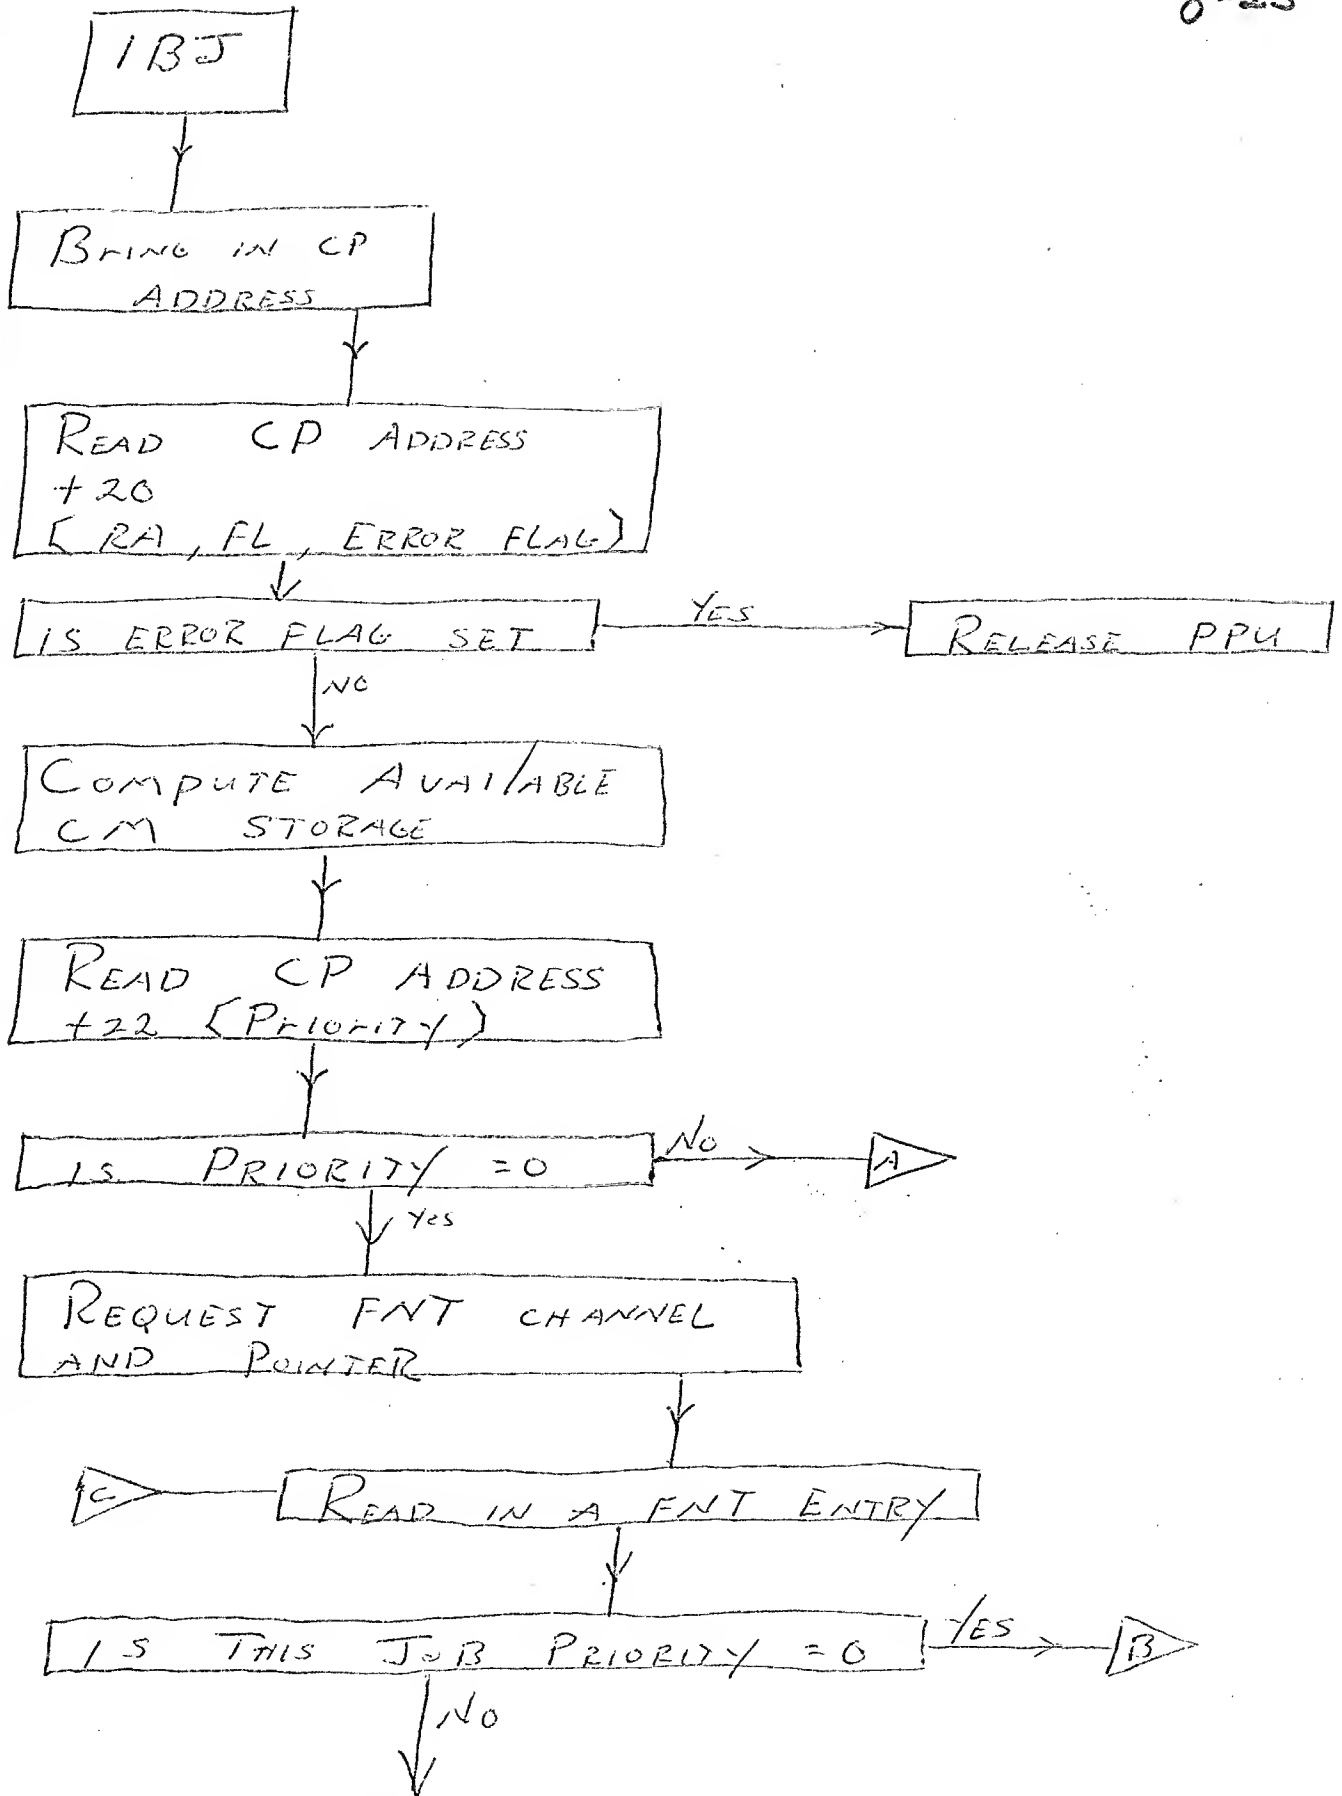 1BJ
BRING IN CP
ADDRESS
READ CP ADDRESS
+20
[RA, FL, ERROR FLAG]
IS ERROR FLAG SET
YES
RELEASE PPU
NO
COMPUTE AVAILABLE
CM STORAGE
READ CP ADDRESS
+22 [PRIORITY]
IS PRIORITY =0
NO
A
YES
REQUEST FNT CHANNEL
AND POINTER
C
READ IN A FNT ENTRY
IS THIS JOB PRIORITY =0
YES
B
NO